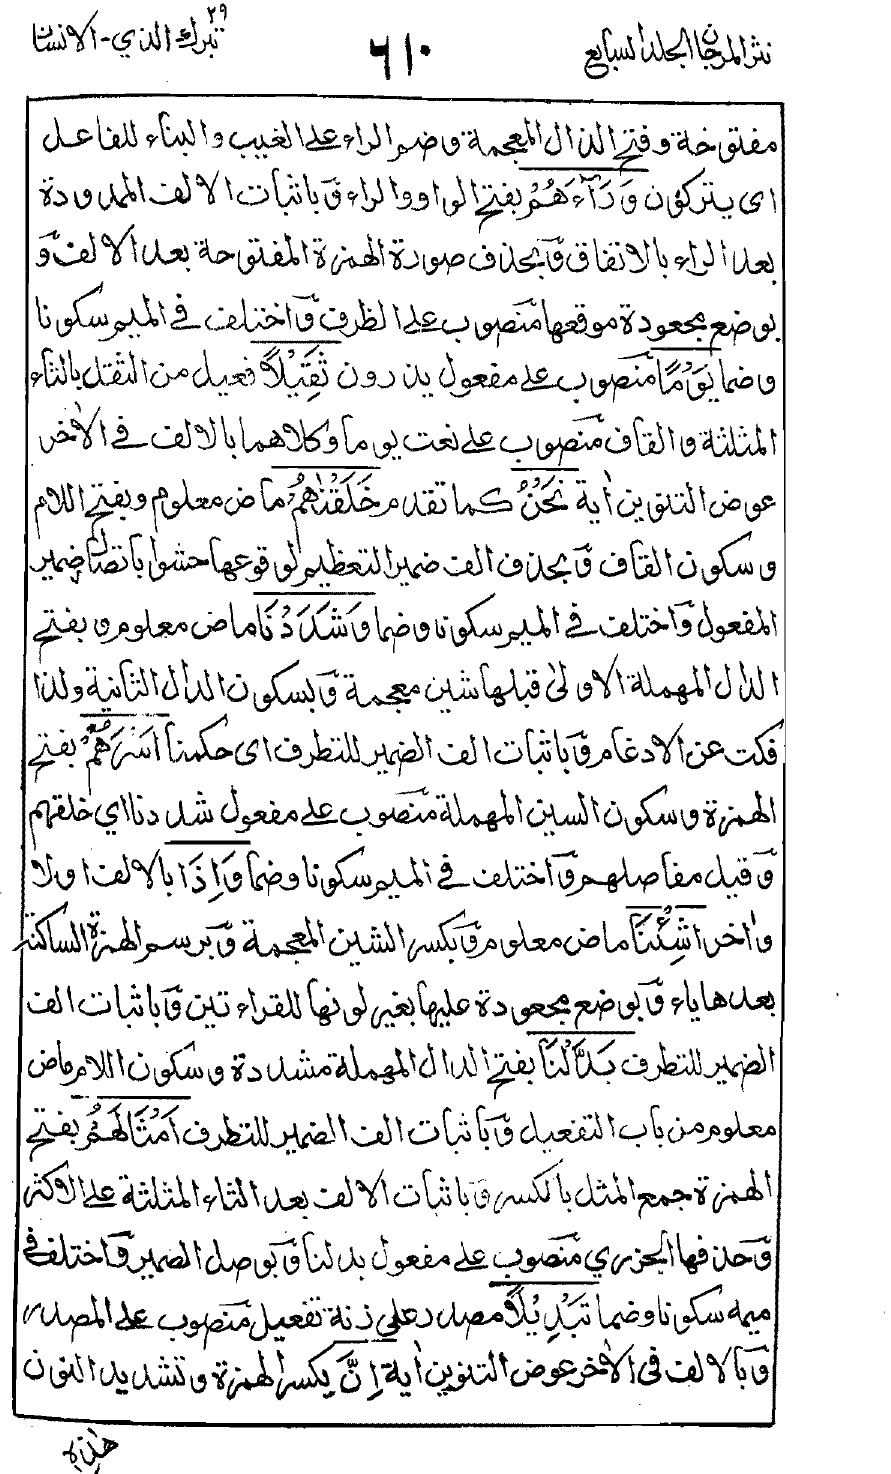 نثر المرجان الجلد السابع
٦١٠
تبرك الذي ٢٩ - الانسان
مفتوحة وفتح الذال المعجمة وضم الراء على الغيب والبناء للفاعل
اى يتركون وَرَآءَهُمْ بفتح الواو والراء وباثبات الالف الممدودة
بعد الراء بالاتفاق وبحذف صورة الهمزة المفتوحة بعد الالف و
بوضع مجعودة موقعها منصوب على الظرف واختلف فى الميم سكونا
وضما يَوْمًا منصوب على مفعول يذرون ثَقِيْلًا فعيل من الثقل بالثاء
المثلثة والقاف منصوب على نعت يوما وكلاهما بالالف فى الاٰخر
عوض التنوين اٰية نَحْنُ كما تقدم خَلَقْنٰهُمْ ماض معلوم وبفتح اللام
وسكون القاف وبحذف الف ضمير التعظيم لوقوعها حشوا باتصال ضمير
المفعول واختلف فى الميم سكونا وضما وَشَدَدْنَا ماض معلوم وبفتح
الدال المهملة الاولىٰ قبلها شين معجمة وبسكون الدال الثانية ولذا
فكت عن الادغام وباثبات الف الضمير للتطرف اى حكمنا اَسْرَهُمْ بفتح
الهمزة وسكون السين المهملة منصوب على مفعول شددنا اى خلقهم
وقيل مفاصلهم واختلف فى الميم سكونا وضما وَاِذَا بالالف اولا
واٰخرا شِئْنَا ماض معلوم وبكسر الشين المعجمة وبرسم الهمزة الساكنة
بعدها ياء وبوضع مجعودة عليها بغير لونها للقراءتين وباثبات الف
الضمير للتطرف بَدَّلْنَا بفتح الدال المهملة مشددة وسكون اللام ماض
معلوم من باب التفعيل وباثبات الف الضمير للتطرف اَمْثَالَهُمْ بفتح
الهمزة جمع المثل بالكسر وباثبات الالف بعد الثاء المثلثة على الاكثر
وحذفها الجزرى منصوب على مفعول بدلنا وبوصل الضمير واختلف فى
ميمه سكونا وضما تَبْدِيْلًا مصدر على زنة تفعيل منصوب على المصدر
وبالالف فى الاٰخر عوض التنوين اٰية اِنَّ بكسر الهمزة وتشديد النون
هٰذه